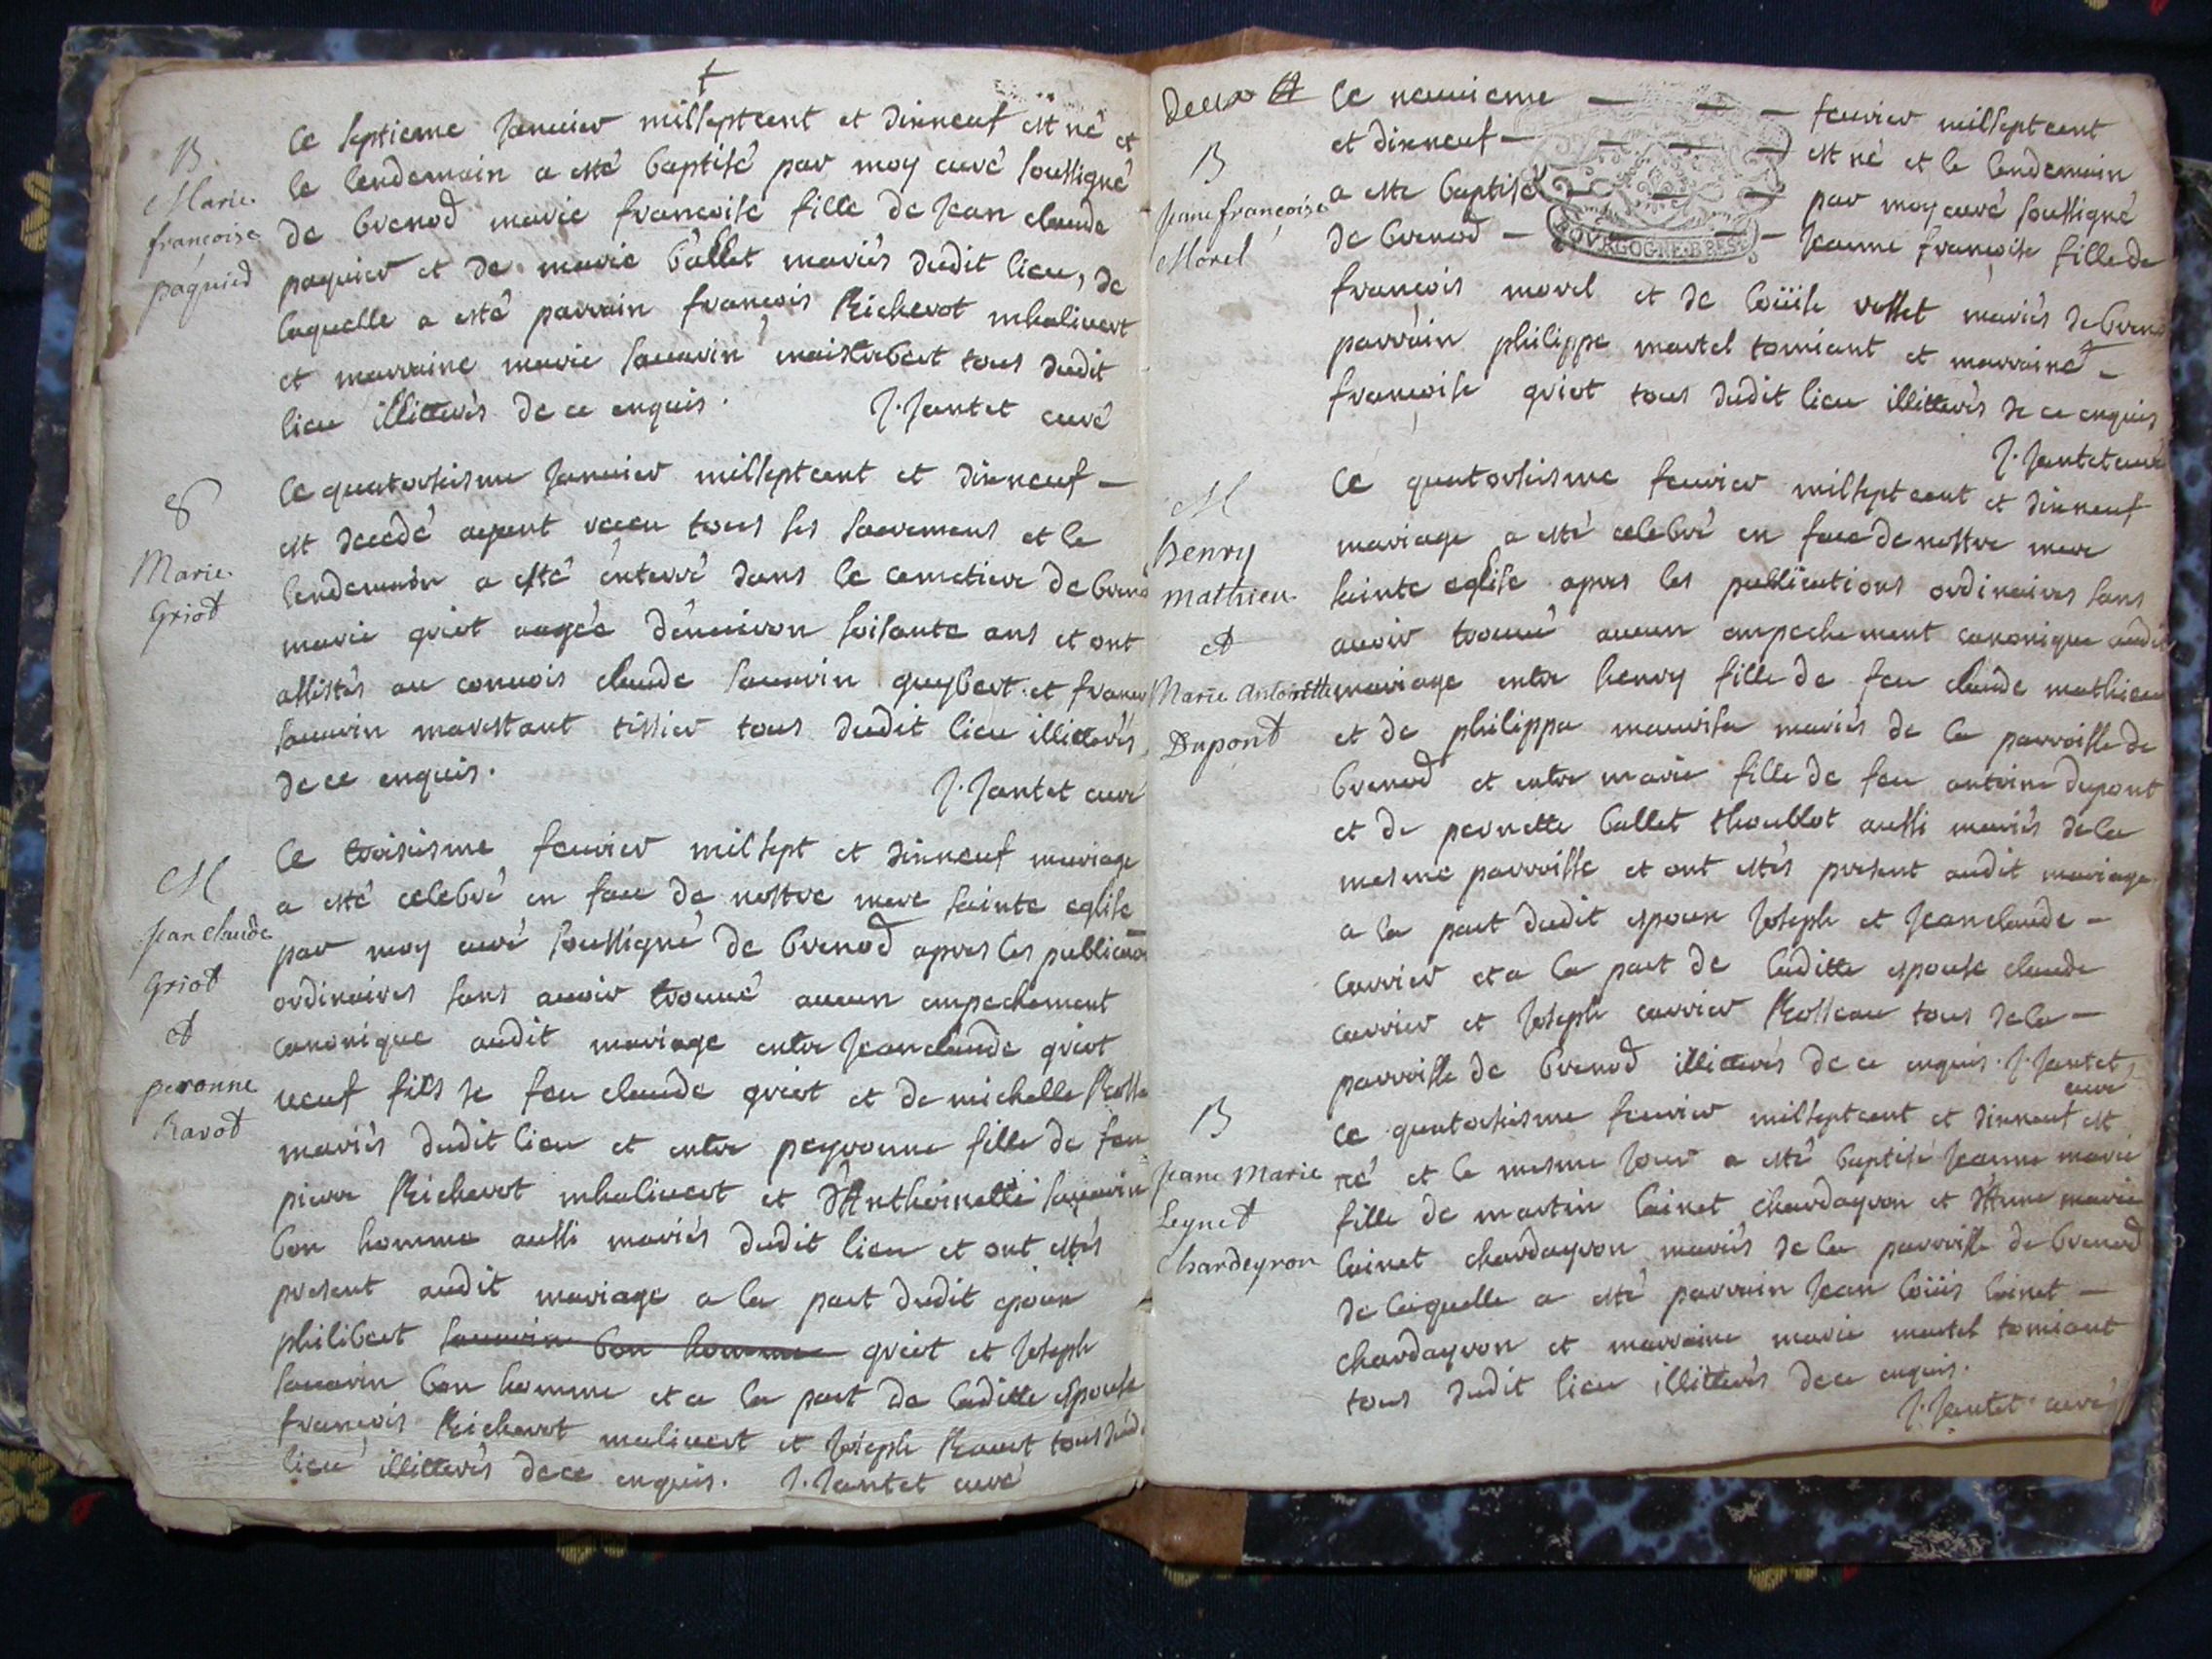 †
B
Marie
francoise
paquied
Ce septieme Janvier milseptcent et dixneuf est né et
le lendemain a esté baptisé par moy curé soussigné
de brenod marie francoise fille de Jean claude
paquier et de marie ballet mariés dudit lieu, de
laquelle a esté parrain francois Richerot mhalivert
et marraine marie savarin maistrobert tous dudit
lieu illitterés de ce enquis. J. Jantet curé
8
Marie
Griot
Ce quatorsiesme Janvier milseptcent et dixneuf —
est decedé ayant receu tous ses sacremens et le
lendemain a esté enterré dans le cemetiere de breno
marie griot aagée d'environ soisante ans et ont
assistés au convois claude savarin guybert et francois
savarin marestant tissier tous dudit lieu illitterés
de ce enquis. J. Jantet curé
M
Jean claude
Griot
et
peronne
Ravot
Ce troisiesme fevrier milsept et dixneuf mariage
a esté celebré en face de nostre mere sainte eglise
par moy curé soussigné de brenod apres les publicaõns
ordinaires sans avoir trouvé aucun empechement
canonique audit mariage entre Jeanclaude griot
veuf fils de feu claude griot et de michelle Rosse
mariés dudit lieu et entre peyronne fille de feu
pierre Richerot mhalivert et d'Anthoinette savarin
bon homme aussi mariés dudit lieu et ont estés
present audit mariage a la part dudit epoux
philibert savarin bon homme griot et Joseph
savarin bon homme et a la part de laditte espouse
francois Richerot malivert et Joseph Ravot tous dud.
lieu illitterés de ce enquis. J. Jantet curé
Deux
B
Jeane francoise
Morel
Ce neuvieme — — — fevrier milseptcent
et dixneuf — — — est né et le lendemain
a esté baptisé — — — par moy curé soussigné
de brenod — — — Jeanne francoise fille de
BOURGOGNE.BRESSE
francois morel et de loüise rosset mariés de breno
parrain philippe martel tomiant et marraine —
francoise griot tous dudit lieu illitterés de ce enquis
J. Jantet curé
M
henry
mathieu
et
Marie Antoinette
Dupont
Ce quatorsiesme fevrier milseptcent et dixneuf
mariage a esté celebré en face de nostre mere
sainte eglise apres les publications ordinaires sans
avoir trouvé aucun empechement canonique audit
mariage entre henry fille de feu claude mathieu
et de philippa mauvise mariés de la parroisse de
brenod et entre marie fille de feu antoine dupont
et de pernette ballet thoublot aussi mariés de la
mesme parroisse et ont estés present audit mariage
a la part dudit epoux Joseph et Jeanclaude —
carrier et a la part de laditte epouse claude
carrier et Joseph carrier Rosseau tous de la —
parroisse de brenod illitterés de ce enquis. J. Jantet
curé
B
Jeane Marie
Leynet
Chardeyron
Ce quatorsiesme fevrier milseptcent et dixneuf est
né et le mesme Jour a esté baptisé Jeanne marie
fille de martin lainet chardayron et d'Anne marie
lainet chardayron mariés de la parroisse de brenod
de laquelle a esté parrain Jean loüis lainet —
chardayron et marraine marie martel tomiant
tous dudit lieu illitterés de ce enquis.
J. Jantet curé